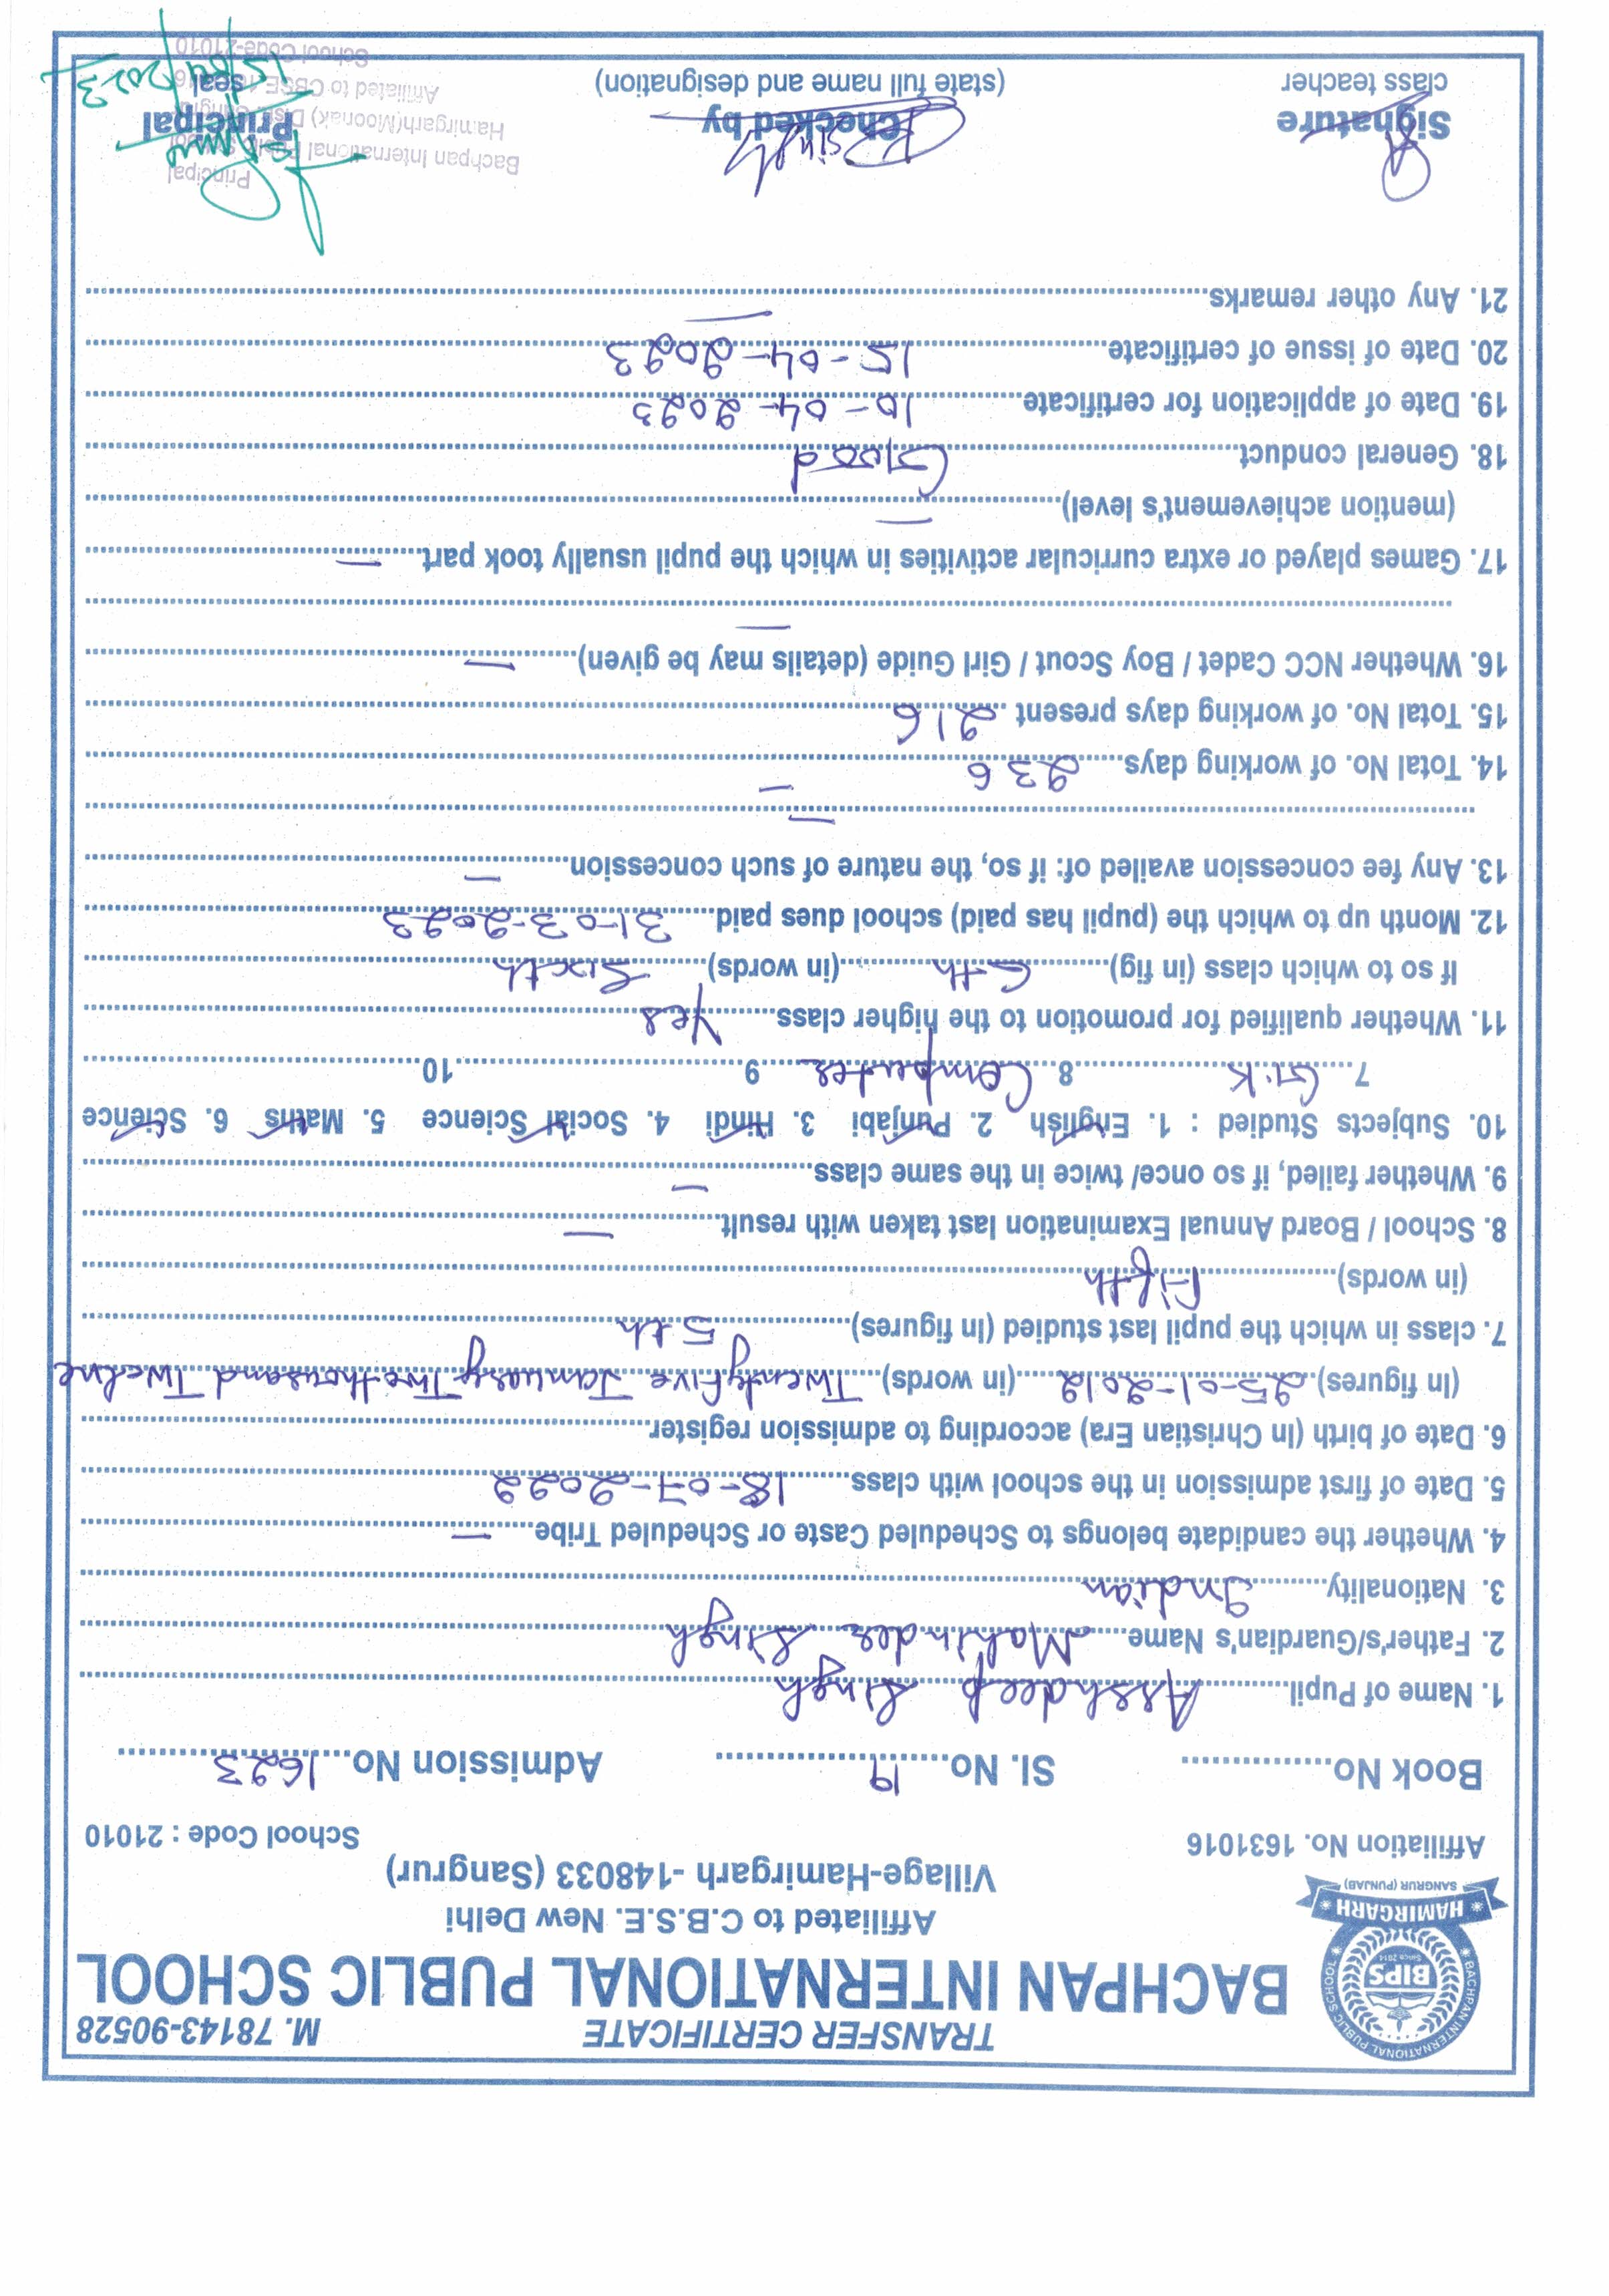 TRANSFER CERTIFICATE M. 78143-90528
BACHPAN INTERNATIONAL PUBLIC SCHOOL
Affiliated to C.B.S.E. New Delhi
Village-Hamirgarh -148033 (Sangrur)
BACHPAN INTERNATIONAL PUBLIC SCHOOL
BIPS
Since 2014
HAMIRGARH
SANGRUR (PUNJAB)
Affiliation No. 1631016 School Code : 21010
Book No............... Sl. No....19............ Admission No...1623............
1. Name of Pupil.....Arshdeep Singh.....
2. Father's/Guardian's Name.....Mahinder Singh.....
3. Nationality.....Indian.....
4. Whether the candidate belongs to Scheduled Caste or Scheduled Tribe.....—.....
5. Date of first admission in the school with class.....18-07-2022.....
6. Date of birth (In Christian Era) according to admission register.....
(In figures)..25-01-2012..(in words)..Twentyfive January Two thousand Twelve
7. class in which the pupil last studied (In figures).....5th.....
(in words).....Fifth.....
8. School / Board Annual Examination last taken with result.....—.....
9. Whether failed, if so once/ twice in the same class.....—.....
10. Subjects Studied : 1. English 2. Punjabi 3. Hindi 4. Social Science 5. Maths 6. Science
7.....G.K.....8.....Computer.....9.....10.....
11. Whether qualified for promotion to the higher class.....Yes.....
If so to which class (in fig).....6th.....(in words).....Sixth.....
12. Month up to which the (pupil has paid) school dues paid.....31-03-2023.....
13. Any fee concession availed of: if so, the nature of such concession.....—.....
.....—.....
14. Total No. of working days.....236.....—
15. Total No. of working days present.....216.....
16. Whether NCC Cadet / Boy Scout / Girl Guide (details may be given).....—.....
.....—.....
17. Games played or extra curricular activities in which the pupil usually took part.....—.....
(mention achievement's level).....—.....
18. General conduct.....Good.....
19. Date of application for certificate.....10-04-2023.....
20. Date of issue of certificate.....15-04-2023.....
21. Any other remarks.....—.....
Principal
Bachpan International Public School
Hamirgarh(Moonak) Distt. Sangrur
Affiliated to CBSE
School Code-21010
Signature Checked by Principal
class teacher (state full name and designation) seal